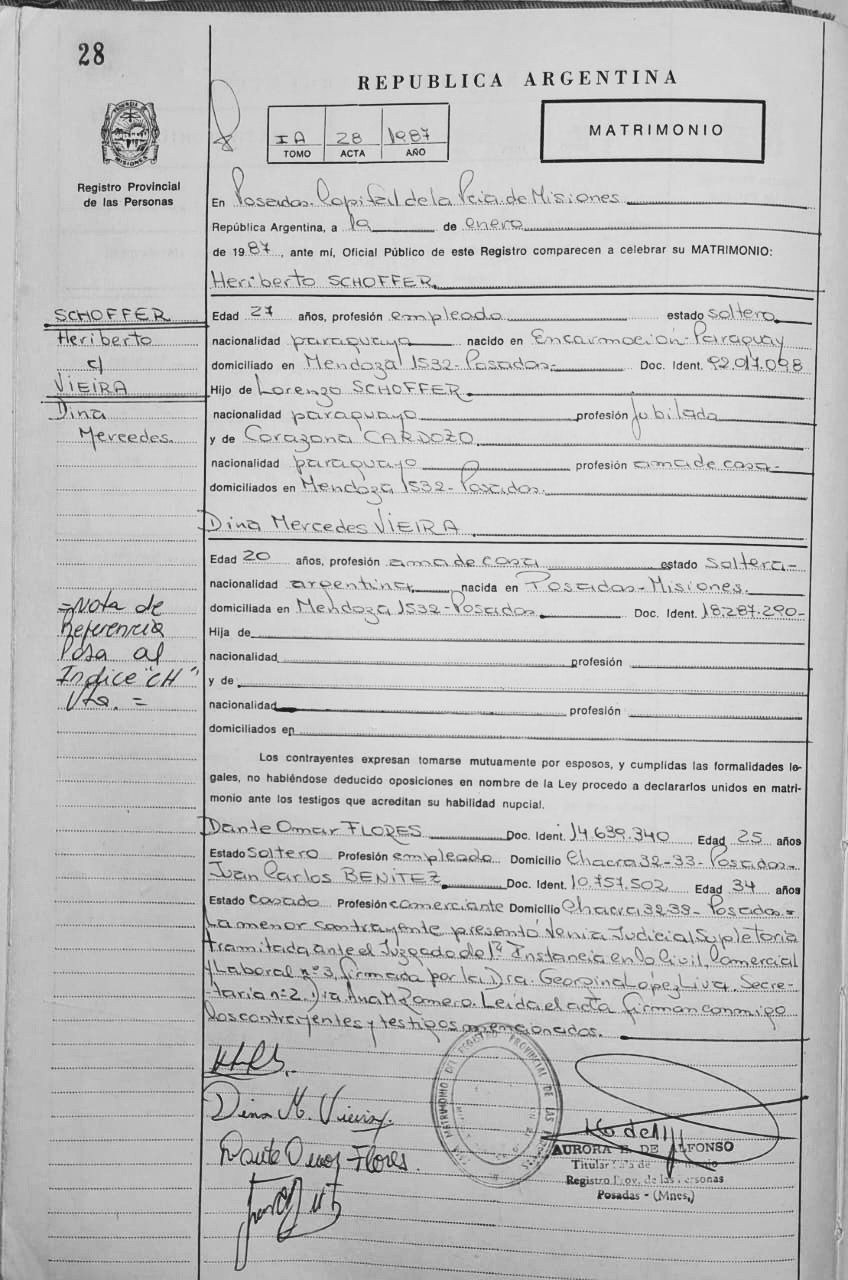 28
REPUBLICA ARGENTINA
PROVINCIA DE
MISIONES
IA 28 1987
TOMO ACTA AÑO
MATRIMONIO
Registro Provincial
de las Personas
En Posadas Capital de la Pcia. de Misiones
República Argentina, a de enero
de 1987, ante mí, Oficial Público de este Registro comparecen a celebrar su MATRIMONIO:
Heriberto SCHOFFER
SCHOFFER
Heriberto
c/
VIEIRA
Dina
Mercedes.
Edad 27 años, profesión empleado estado soltero
nacionalidad paraguayo nacido en Encarnación-Paraguay
domiciliado en Mendoza 1532-Posadas- Doc. Ident. 92.017.098
Hijo de Lorenzo SCHOFFER
nacionalidad paraguayo profesión Jubilado
y de Corazona CARDOZO
nacionalidad paraguayo profesión ama de casa-
domiciliados en Mendoza 1532-Posadas.
Dina Mercedes VIEIRA
Edad 20 años, profesión ama de casa estado soltera-
nacionalidad argentina nacida en Posadas-Misiones.
domiciliada en Mendoza 1532-Posadas Doc. Ident. 18.287.290-
Hija de
nacionalidad profesión
y de
nacionalidad profesión
domiciliados en
=Nota de
Referencia
Pasa al
Indice "CH"
Vta. =
Los contrayentes expresan tomarse mutuamente por esposos, y cumplidas las formalidades le-
gales, no habiéndose deducido oposiciones en nombre de la Ley procedo a declararlos unidos en matri-
monio ante los testigos que acreditan su habilidad nupcial.
Dante Omar FLORES Doc. Ident. 14.639.340 Edad 25 años
Estado Soltero Profesión empleado Domicilio Chacra 32-33-Posadas-
Juan Carlos BENITEZ Doc. Ident. 10.757.502 Edad 34 años
Estado Casado Profesión comerciante Domicilio Chacra 32-38-Posadas=
La menor contrayente presentó Venia Judicial Supletoria
tramitada ante el Juzgado de 1ª Instancia en lo Civil, Comercial
y Laboral nº 3, firmada por la Dra. Georgina López Liva. Secre-
taria nº 2. Dra. Ana M. Romero. Leida el acta firman conmigo
los contrayentes y testigos mencionados.
Dina M. Vieira.
Dante Omar Flores.
REGISTRO PROVINCIAL DE LAS
AURORA E. DE ALFONSO
Titular
Registro Prov. de las Personas
Posadas - (Mnes.)